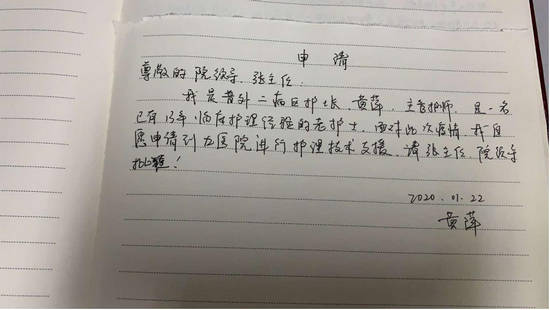 申请
尊敬的院领导、张主任:
我是普外二病区护士长黄萍,主管护师,是一名
已有13年临床护理经验的老护士,面对此次疫情,我自
愿申请到九医院进行护理技术支援,请张主任、院领导
批准!
2020.01.22
黄萍